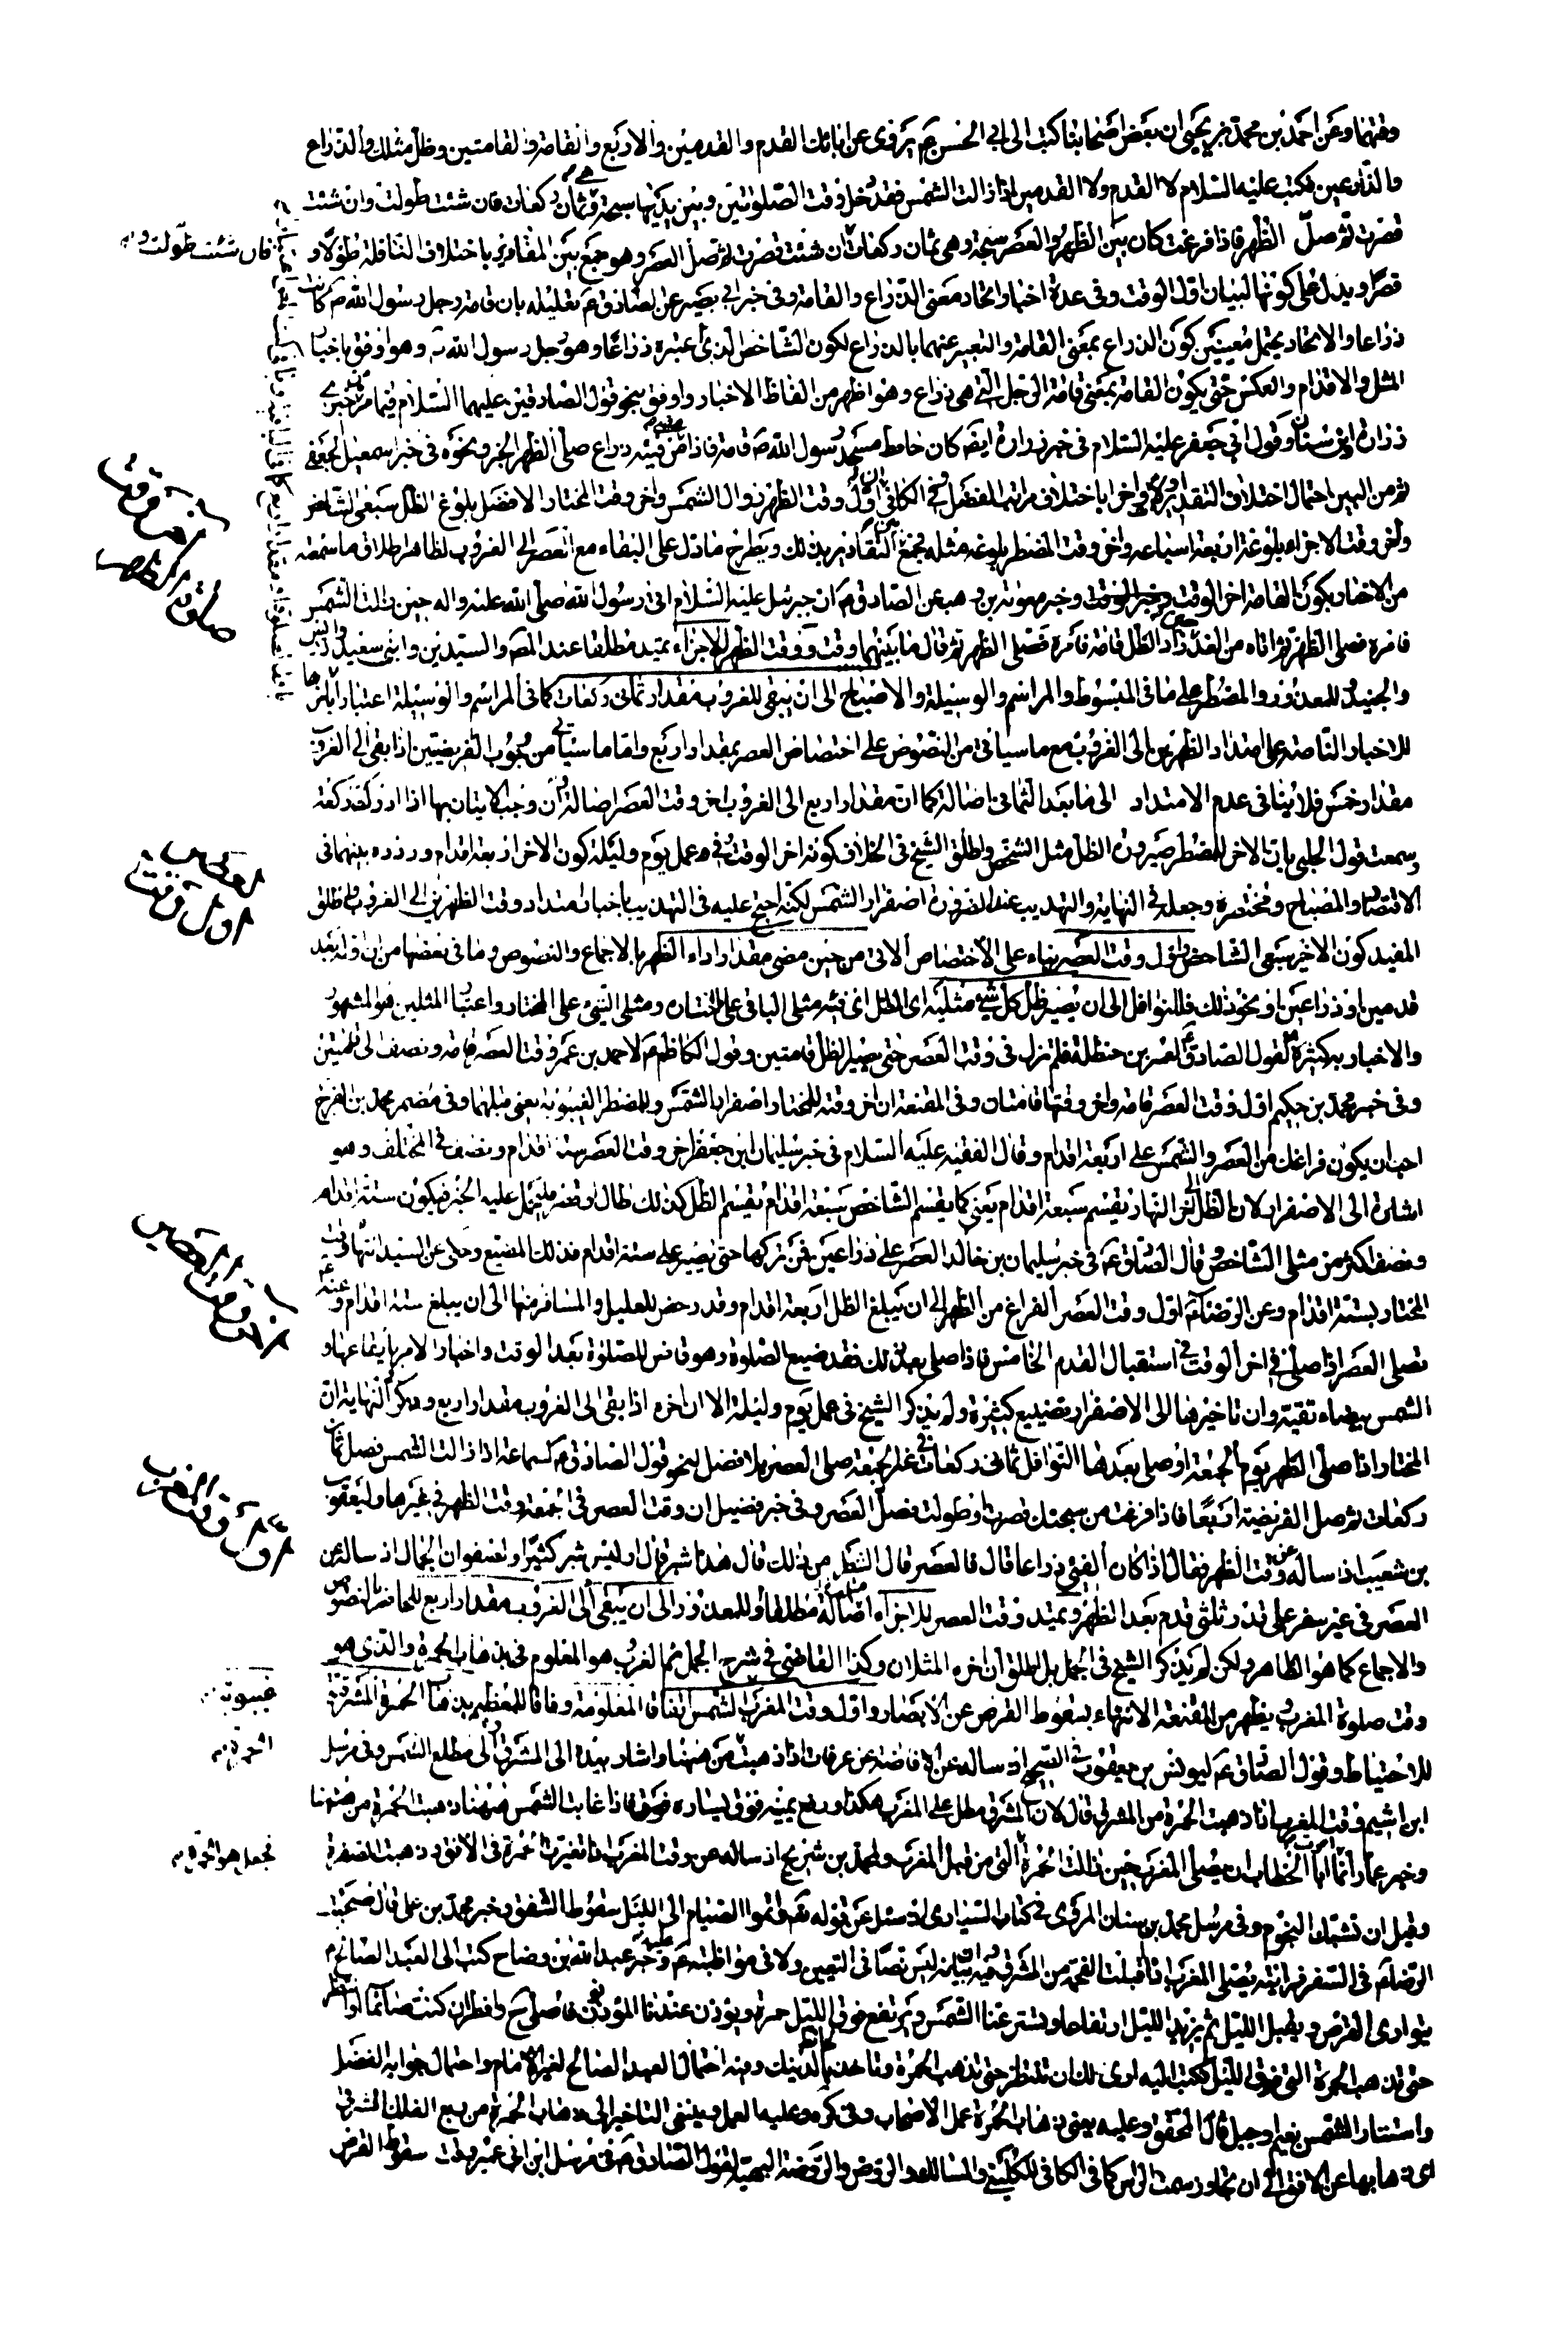 وقتهما وعن احمد بن محمد بن يحيى ان بعض اصحابنا كتب الى ابى الحسن ع يروى عن ابائك القدم والقدمين والاربع والقامة والقامتين وظل مثلك والذراع
والذراعين فكتب عليه السلام لا القدم ولا القدمين اذا زالت الشمس فقد دخل وقت الصلوتين وبين يديهما سبحة وهى ثمان ركعات فان شئت طولت وان شئت
قصرت ثم صل الظهر فاذا فرغت كان بين الظهر والعصر سبحة وهى ثمان ركعات ان شئت قصرت ثم صل العصر وهو جمع بين المقادير باختلاف النافلة طولا و
فان شئت طولت
قصرا ويدل على كونها لبيان اول الوقت وفى عدة اخبار اتحاد معنى الذراع والقامة وفى خبر ابى بصير عن الصادق ع تعليله بان قامة رحل رسول الله ص كانت
ذراعا والاتحاد يحتمل معنيين كون الذراع بمعنى القامة والتعبير عنهما بالذراع لكون الشاخص الذى اعتبره ذراعا وهو رحل رسول الله ص وهو اوفق باخبار
المثل والاقدام والعكس حتى يكون القامة بمعنى قامة الرحل التى هى ذراع وهو اظهر من الفاظ الاخبار واوفق بنحو قول الصادقين عليهما السلام فيما مر من خبرى
زرارة وابن سنان وقول ابى جعفر عليه السلام فى خبر زرارة ايضا كان حائط مسجد رسول الله ص قامة فاذا مضى من فيئه ذراع صلى الظهر الخبر ونحوه فى خبر اسمعيل الجعفى
ثم من البين احتمال اختلاف التقدير اولا واخرا باختلاف مراتب الفضل وفى الكافى ان اول وقت الظهر زوال الشمس واخر وقت المختار الافضل بلوغ الظل سبعى الشاخص
واخر وقت الاجزاء له بلوغه اربعة اسباعه واخر وقت المضطر بلوغه مثله فجمع بين التقادير بذلك ويطرح ما دل على البقاء مع العصر الى الغروب لظاهر اطلاق ما سمعته
من الاخبار بكون القامة اخر الوقت وخبر معوية بن وهب عن الصادق ع ان جبرئيل عليه السلام اتى رسول الله صلى الله عليه واله حين زالت الشمس
فامره فصلى الظهر ثم اتاه من الغد حين زاد الظل قامة فامره فصلى الظهر ثم قال ما بينهما وقت ووقت الظهر للاجزاء يمتد مطلقا عند المص والسيدين وابنى سعيد وادريس
والجنيد وللمعذور والمضطر على ما فى المبسوط والمراسم والوسيلة والاصباح الى ان يبقى للغروب مقدار ثمانى ركعات كما فى المراسم والوسيلة اعتبارا باخرها
للاخبار الناصة على امتداد الظهرين الى الغروب مع ما سيأتى من النصوص على اختصاص العصر بمقدار اربع واما ما سيأتى من وجوب الفريضتين اذا بقى الى الغروب
مقدار خمس فلا ينافى عدم الامتداد الى ما بعد الثمانى اصالة كما ان مقدار اربع الى الغروب اخر وقت العصر اصالة وان وجب الاتيان بها اذا ادرك ركعة
وسمعت قول الحلبى بان الاخر للمضطر صيرورة الظل مثل الشخص واطلق الشيخ فى الخلاف كونه اخر الوقت وفى عمل يوم وليلة كون الاخر اربعة اقدام وردده بينهما فى
الاقتصاد والمصباح ومختصره وجعله فى النهاية والتهذيب عند الضرورة اصفرار الشمس لكنه احتج عليه فى التهذيب باخبار امتداد وقت الظهرين الى الغروب واطلق
المفيد كون الاخير سبعى الشاخص واول وقت العصر بناء على الاختصاص الاتى من حين مضى مقدار اداء الظهر بالاجماع والنصوص وما فى بعضها من ان وقته بعد
قدمين او ذراعين او نحو ذلك فللنوافل الى ان يصير ظل كل شىء مثليه اى الظل اى فيئه مثلى الباقى على ما اختاره ومثلى الشىء على المختار واعتبار المثلين هو المشهور
والاخبار به كثيرة كقول الصادق ع لعمر بن حنظلة فلم تزل فى وقت العصر حتى يصير الظل قامتين وقول الكاظم ع لاحمد بن عمر وقت العصر قامة ونصف الى قامتين
وفى خبر محمد بن حكيم اول وقت العصر قامة واخر وقتها قامتان وفى المقنعة ان اخر وقته للمختار اصفرار الشمس وللمضطر الغيبوبة يعنى قبلهما وفى مضمر محمد بن الفرج
احب ان يكون فراغك من العصر والشمس على اربعة اقدام وقال الفقيه عليه السلام فى خبر سليمان بن جعفر اخر وقت العصر ستة اقدام ونصف فى المختلف وهو
اشارة الى الاصفرار لان الظل الى اخر النهار يقسم سبعة اقدام يعنى كما يقسم الشاخص سبعة اقدام يقسم الظل كذلك طال او قصر فليحمل عليه الخبر فيكون ستة اقدام
ونصف اكثر من مثلى الشاخص وقال الصادق ع فى خبر سليمان بن خالد العصر على ذراعين فمن تركها حتى تصير على ستة اقدام فذلك المضيع وحكى عن السيد انتهاء وقت
المختار بستة اقدام وعن الرضا ع اول وقت العصر الفراغ من الظهر الى ان يبلغ الظل اربعة اقدام وقد رخص للعليل والمسافر منها الى ان يبلغ ستة اقدام وعنه ع
تصلى العصر اذا صلى فى اخر الوقت فى استقبال القدم الخامس فاذا صلى بعد ذلك فقد ضيع الصلوة وهو قاض للصلوة بعد الوقت واخبار الامر بايقاعها و
الشمس بيضاء نقية وان تاخيرها الى الاصفرار تضييع كثيرة ولم يذكر الشيخ فى عمل يوم وليلة الا ان اخره اذا بقى الى الغروب مقدار اربع وذكر فى النهاية ان
المختار اذا صلى الظهر يوم الجمعة او صلى بعدها النوافل ثمانى ركعات فى غير الجمعة صلى العصر بلا فصل لنحو قول الصادق ع لسماعة اذا زالت الشمس فصل ثمان
ركعات ثم صل الفريضة اربعا فاذا فرغت من سبحتك قصرت او طولت فصل العصر وفى خبر فضيل ان وقت العصر فى الجمعة وقت الظهر فى غيرها وليعقوب
بن شعيب اذ ساله عن وقت الظهر فقال اذا كان الفىء ذراعا قال قلت فالعصر قال الشطر من ذلك قال هذا شبر قال اوليس شبر كثيرا ولصفوان الجمال اذ ساله عن
العصر فى غير سفر على قدر ثلثى قدم بعد الظهر ويمتد وقت العصر للاجزاء اصالة مطلقا وللمعذور الى ان يبقى الى الغروب مقدار اربع للحاضر بالنصوص
والاجماع كما هو الظاهر ولكن لم يذكر الشيخ فى الجمل بل اطلق ان اخره المثلان وكذا القاضى فى شرح الجمل ثم الغروب هو المعلوم فى بذهاب الحمرة والذى هو
وقت صلوة المغرب يظهر من المقنعة الانتهاء بسقوط القرص عن الابصار واول وقت المغرب الشمس اتفاقا المعلومة وفاقا للمعظم بذهاب الحمرة المشرقية
للاحتياط وقول الصادق ع ليونس بن يعقوب فى الصحيح اذ ساله عن الافاضة عن عرفات اذا ذهبت الحمرة من هيهنا واشار بيده الى المشرق والى مطلع الشمس وفى مرسل
ابن اشيم وقت المغرب اذا ذهبت الحمرة من المشرق قال لان المشرق مطل على المغرب هكذا ورفع يمينه فوق يساره فاذا غابت الشمس هيهنا ذهبت الحمرة من هيهنا
وخبر عمار انما امرت ابا الخطاب ان يصلى المغرب حين زالت الحمرة التى من قبل المغرب ولمحمد بن شريح اذ ساله عن وقت المغرب اذا تغيرت الحمرة فى الافق وذهبت الصفرة
وقبل ان تشتبك النجوم وفى مرسل محمد بن سنان المروى فى كتاب السيارى اذ سئل عن قوله تعالى ثم اتموا الصيام الى الليل سقوط الشفق وخبر محمد بن على قال صحبت
الرضا ع فى السفر فرايته يصلى المغرب اذا اقبلت الفحمة من المشرق ليس نصا فى التعيين ولا فى مواظبته ع عليه وخبر عبدالله بن وضاح كتب الى العبد الصالح ع
يتوارى القرص ويقبل الليل ثم يزيد الليل ارتفاعا وتستر عنا الشمس وترتفع فوق الليل حمرة ويؤذن عندنا المؤذنون فاصلى ح وافطر ان كنت صائما او انتظر
حتى تذهب الحمرة التى فوق الليل فكتب اليه ارى لك ان تنتظر حتى تذهب الحمرة وتاخذ بالحائط لدينك وفيه احتمال العبد الصالح لغير الامام واحتمال جوابه الفضل
واستتار الشمس بغيم او جبل قال المحقق وعليه يعنى ذهاب الحمرة عمل الاصحاب وفى كره وعليه العمل وينبغى التاخير الى ذهاب الحمرة من ربع الفلك الشرقى
اى ذهابها عن الافق الى ان تجاوز سمت الراس كما فى الكافى للكلينى والمسالك والروض والروضة البهية لقول الصادق ع فى مرسل ابن ابى عمير وقت سقوط القرص
اول وقت
غيبوبة